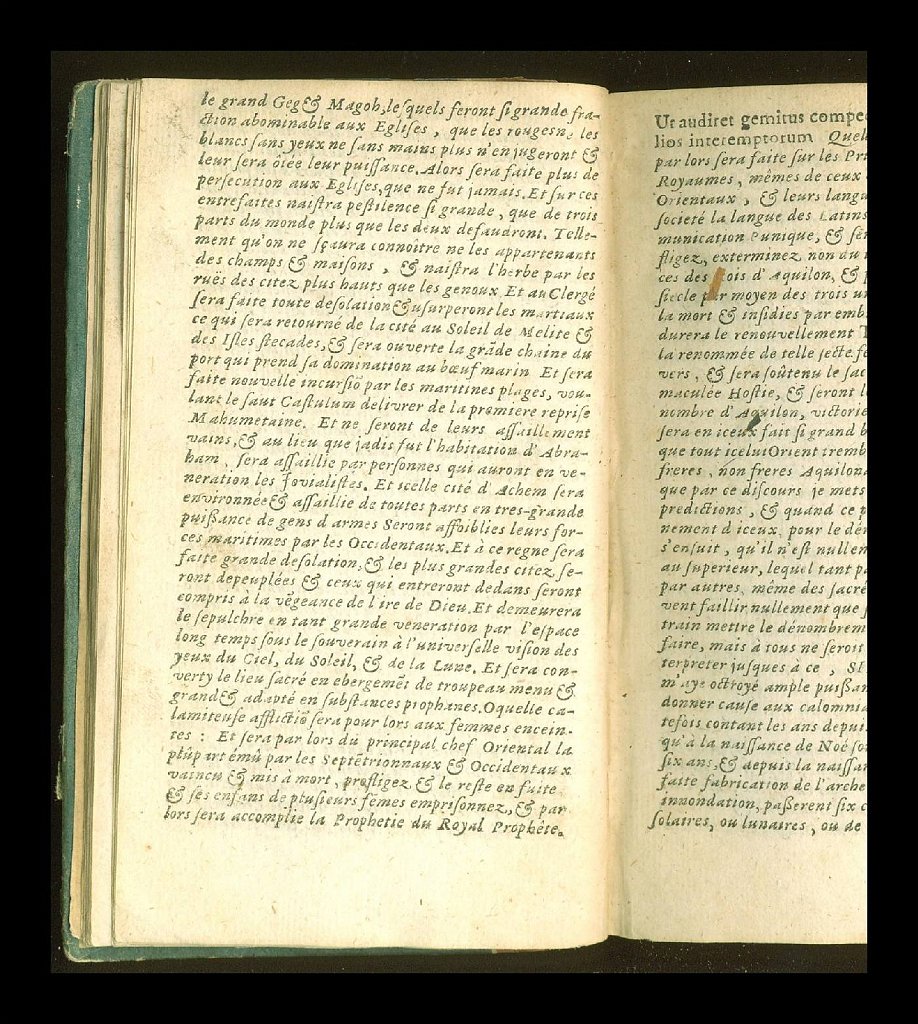 le grand Geg & Magoh, leſquels feront ſi grande fra-
ction abominable aux Egliſes, que les rouges ne les
blancs ſans yeux ne ſans mains plus n'en jugeront &
leur ſera ôiée leur puiſſance. Alors ſera faite plus de
perſecution aux Egliſes, que ne fut jamais. Et ſur ces
entrefaites naiſtra peſtilence ſi grande, que de trois
parts du monde plus que les deux defaudront. Telle-
ment qu'on ne ſçaura connoître ne les appartenants
des champs & maiſons, & naiſtra l'herbe par les
ruës des citez plus hauts que les genoux. Et au Clergé
ſera faite toute deſolation & uſurperont les martiaux
ce qui ſera retourné de la cité au Soleil de Melite &
des Iſles ſtecades, & ſera ouverte la grãde chaine du
port qui prend ſa domination au bœuf marin Et ſera
faite nouvelle incurſiõ par les maritines plages, vou-
lant le ſaut Caſtulum delivrer de la premiere repriſe
Mahumetaine. Et ne ſeront de leurs aſſaillement
vains, & au lieu que jadis fut l'habitation d'Abra-
ham, ſera aſſaillie par perſonnes qui auront en ve-
neration les Jovialiſtes. Et icelle cité d'Achem ſera
environnée & aſſaillie de toutes parts en tres-grande
puiſſance de gens d'armes Seront affoiblies leurs for-
ces maritimes par les Occidentaux. Et à ce regne ſera
faite grande deſolation, & les plus grandes citez ſe-
ront depeuplées & ceux qui entreront dedans ſeront
compris à la vẽgeance de l'ire de Dieu. Et demeurera
le ſepulchre en tant grande veneration par l'eſpace
long temps ſous le ſouverain à l'univerſelle viſion des
yeux du Ciel, du Soleil, & de la Lune. Et ſera con-
verty le lieu ſacré en ebergemẽt de troupeau menu &
grand & adapté en ſubſtances prophanes. O quelle ca-
lamiteuſe afflictiõ ſera pour lors aux femmes encein-
tes : Et ſera par lors du principal chef Oriental la
plûpart émû par les Septẽtrionnaux & Occidentaux
vaincu & mis à mort, profligez & le reſte en fuite
& ſes enfans de pluſieurs fẽmes empriſonnez, & par
lors ſera accomplie la Prophetie du Royal Prophête.
Ut audiret gemitus comped
lios interemptorum Quel
par lors ſera faite ſur les Pri
Royaumes, mêmes de ceux
Orientaux, & leurs langu
ſocieté la langue des Latins
munication Punique, & ſer
fligez, exterminez non du
ces des Rois d'Aquilon, & p
ſiecle par moyen des trois un
la mort & inſidies par emb
durera le renouvellement T
la renommée de telle ſecte ſe
vers, & ſera ſoûtenu le ſac
maculée Hoſtie, & ſeront l
nombre d'Aquilon, victorie
ſera en iceux fait ſi grand b
que tout icelui Orient tremb
freres, non freres Aquilona
que par ce diſcours je mets
predictions, & quand ce p
nement d iceux pour le dé
s'enſuit, qu'il n'eſt nullem
au ſuperieur, lequel tant pa
par autres même des ſacré
vent faillir nullement que
train mettre le dénombrem
faire, mais à tous ne ſeroit
terpreter juſques à ce, SI
m'aye octroyé ample puiſſan
donner cauſe aux calomnia
tefois contant les ans depuis
qu'à la naiſſance de Noé ſo
ſix ans, & depuis la naiſſan
faite fabrication de l'arche
innondation, paſſerent ſix c
ſolaires, ou lunaires, ou de